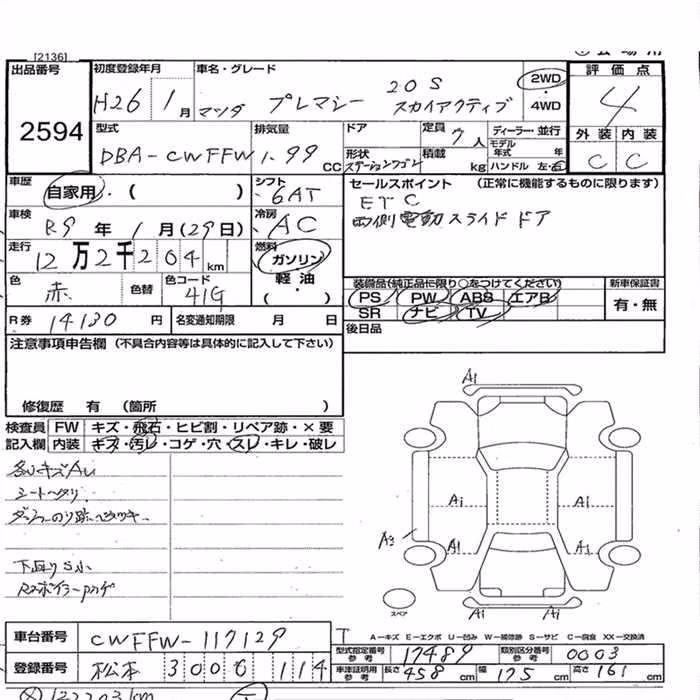 [2136]
出品番号
2594
初度登録年月
H26 1月
車名・グレード
マツダ プレマシー 20S スカイアクティブ
2WD
・
4WD
評価点
4
外装 内装
C C
型式
DBA-CWFFW
排気量
1.99 CC
ドア
形状
ステーションワゴン
定員
7人
積載
kg
ディーラー・並行
モデル年式 年
ハンドル 左・右
車歴
自家用・( )
シフト
6AT
セールスポイント (正常に機能するものに限ります)
ETC
両側電動スライドドア
車検
R9年1月(29日)
冷房
AC
走行
12万2千204km
燃料
ガソリン
軽油
・( )
色
赤
色替
色コード
41G
装備品(純正品に限り○をつけてください)
PS PW ABS エアB
SR ナビ TV
新車保証書
有・無
R券 14130円
名変通知期限 月 日
後日品
注意事項申告欄 (不具合内容等は具体的に記入して下さい)
修復歴 有 (箇所 )
検査員 FW キズ・飛石・ヒビ割・リペア跡・×要
記入欄 内装 キズ・汚レ・コゲ・穴・スレ・キレ・破レ
シートヘタリ
下廻りS小
A1
A1 A1
A3 A1 A1
A1 A1
スペア
A−キズ E−エクボ U−凹み W−補修跡 S−サビ C−腐食 XX−交換済
車台番号
CWFFW-117129
型式指定番号 参考
17489
類別区分番号 参考
0003
登録番号
松本 300 114
車庫証明用 参考
長さ 458cm 幅 175cm 高さ 161cm
122203km